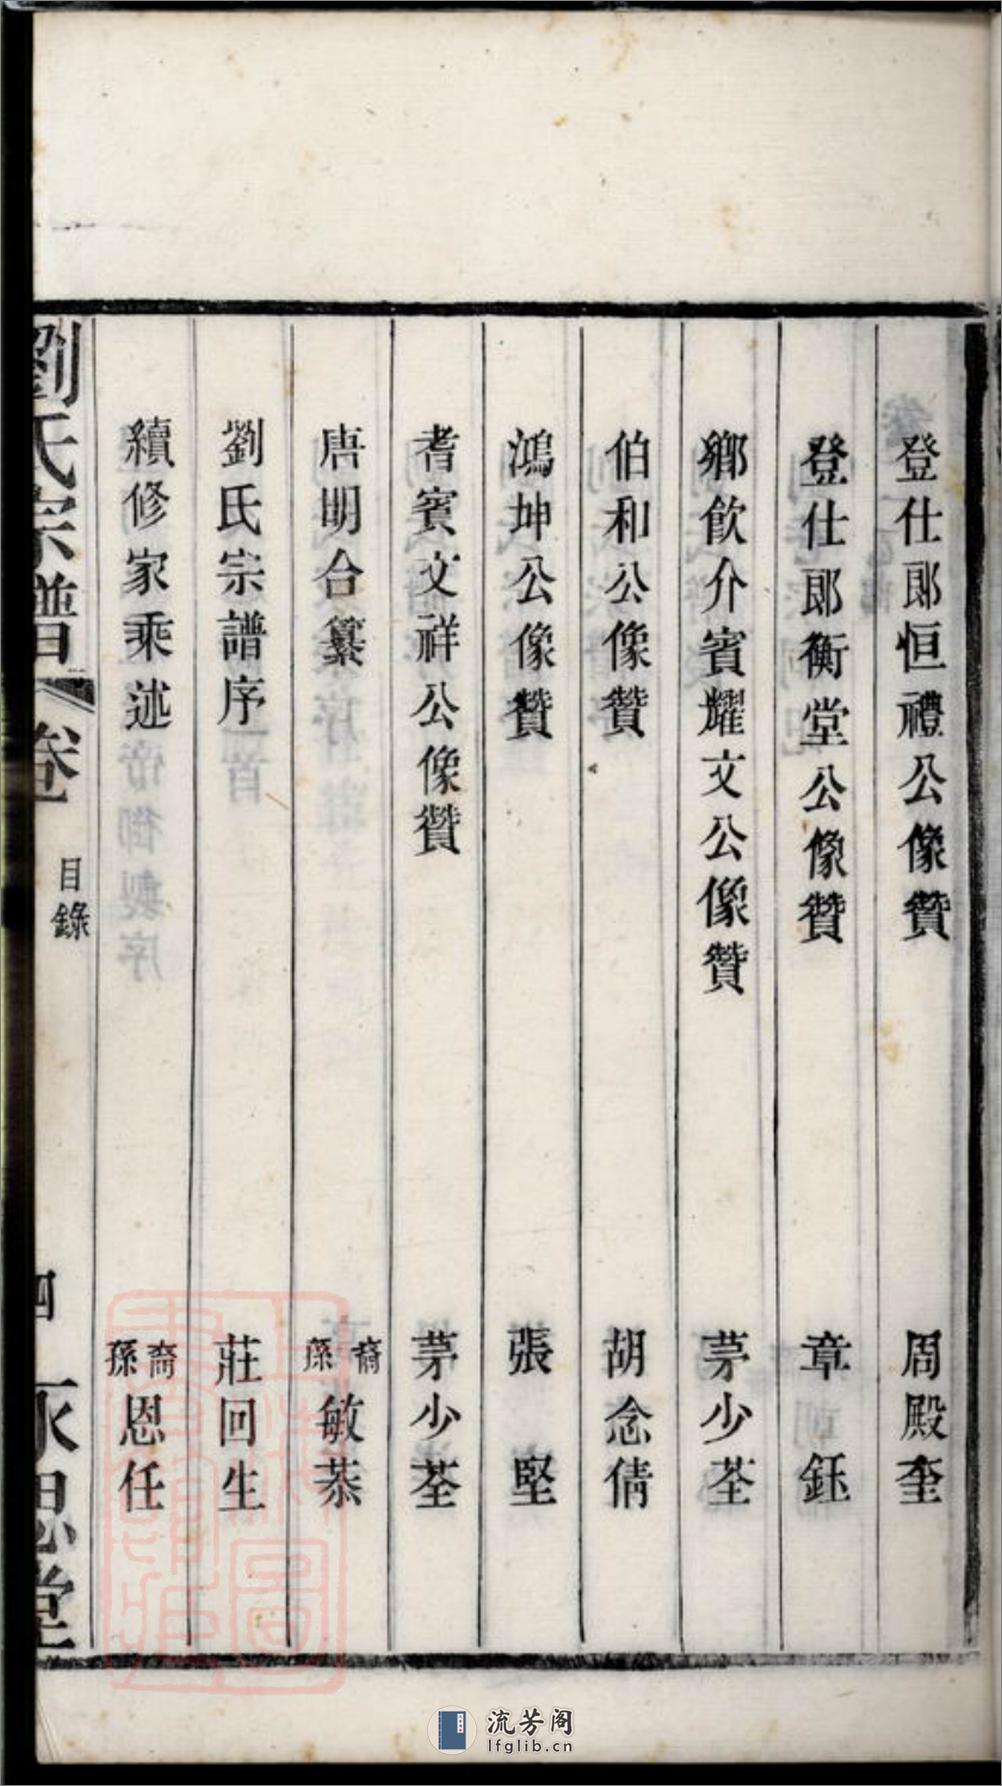 登仕郎恒禮公像贊 周殿奎
登仕郎衡堂公像贊 章鈺
鄉飲介賓耀文公像贊 茅少荃
伯和公像贊 胡念倩
鴻坤公像贊 張堅
耆賓文祥公像贊 茅少荃
唐明合纂序 裔孫敏恭
劉氏宗譜序 莊回生
續修家乘述 裔孫恩任
劉氏宗譜 卷一 目錄 四 永思堂
流芳阁
lfglib.cn